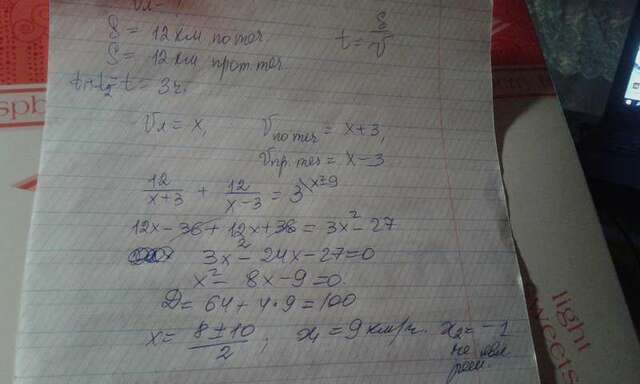 Vл =
S = 12 км по теч.
t = S/V
S = 12 км прот. теч.
t₁ + t₂ = t = 3 ч.
Vл = x, V по теч = x + 3,
Vпр. теч = x - 3
12/(x+3) + 12/(x-3) = 3 \x²-9
12x - 36 + 12x + 36 = 3x² - 27
3x² - 24x - 27 = 0
x² - 8x - 9 = 0
D = 64 + 4 · 9 = 100
x = (8 ± 10)/2 ; x₁ = 9 км/ч. x₂ = -1
не явл
реш.
light
sweets